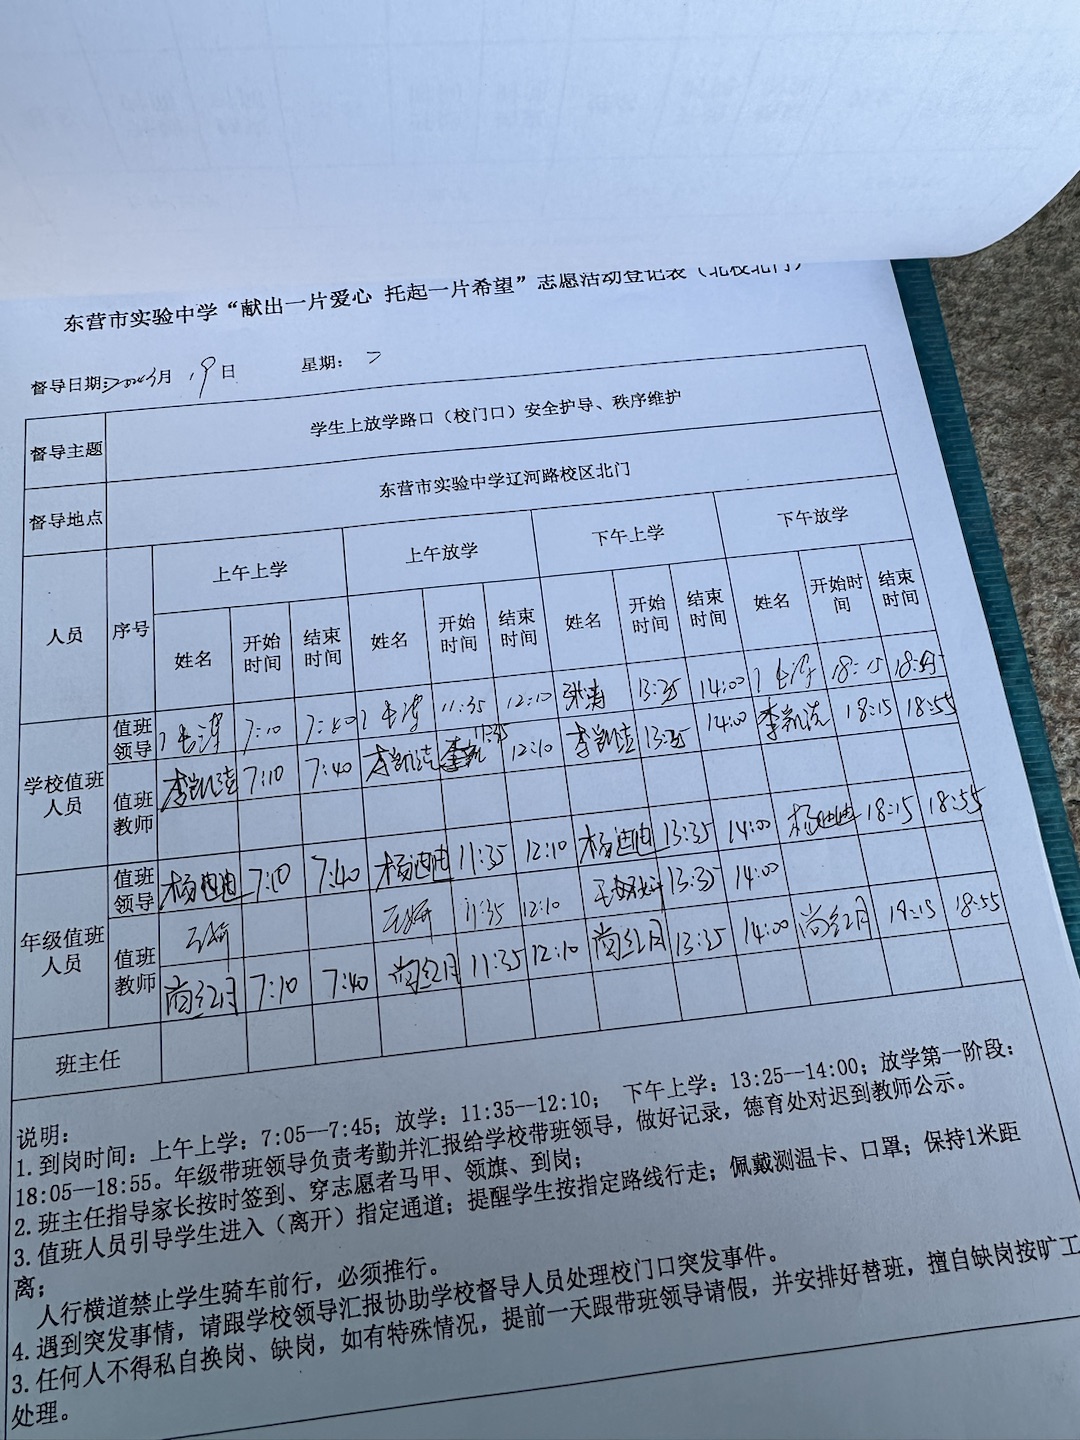 东营市实验中学“献出一片爱心 托起一片希望”志愿活动登记表（北校北门）
督导日期: 月 19 日 星期: 二
督导主题 学生上放学路口（校门口）安全护导、秩序维护
督导地点 东营市实验中学辽河路校区北门
人员 序号 上午上学 上午放学 下午上学 下午放学
姓名 开始时间 结束时间 姓名 开始时间 结束时间 姓名 开始时间 结束时间 姓名 开始时间 结束时间
学校值班人员 值班领导 7:10 11:35 12:10 张涛 13:35 14:00 18:15
值班教师 李凯洁 7:10 7:40 李凯洁 11:35 12:10 李凯洁 13:35 14:00 李凯洁 18:15 18:55
年级值班人员 值班领导 杨迪迪 7:10 7:40 杨迪迪 11:35 12:10 杨迪迪 13:35 14:00 杨迪迪 18:15 18:55
值班教师 王妍 王妍 11:35 12:10 13:35 14:00
尚红月 7:10 7:40 尚红月 11:35 12:10 尚红月 13:35 14:00 尚红月 18:55
班主任
说明：
1.到岗时间：上午上学：7:05—7:45；放学：11:35—12:10； 下午上学：13:25—14:00；放学第一阶段：
18:05—18:55。年级带班领导负责考勤并汇报给学校带班领导，做好记录，德育处对迟到教师公示。
2.班主任指导家长按时签到、穿志愿者马甲、领旗、到岗；
3.值班人员引导学生进入（离开）指定通道；提醒学生按指定路线行走；佩戴测温卡、口罩；保持1米距
离；
人行横道禁止学生骑车前行，必须推行。
4.遇到突发事情，请跟学校领导汇报协助学校督导人员处理校门口突发事件。
3.任何人不得私自换岗、缺岗，如有特殊情况，提前一天跟带班领导请假，并安排好替班，擅自缺岗按旷工
处理。